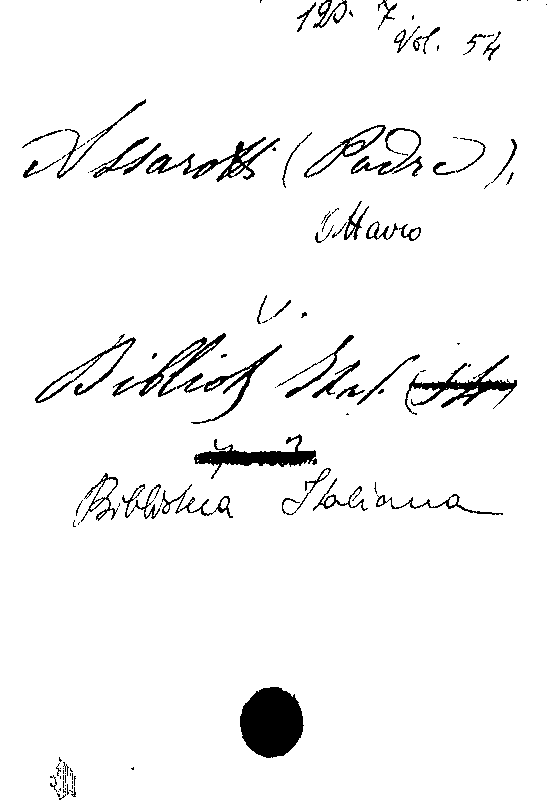 120. 7.
Vol. 54
Assarotti (Padre),
Ottavio
v.
Biblioth Ital.
Biblioteca Italiana